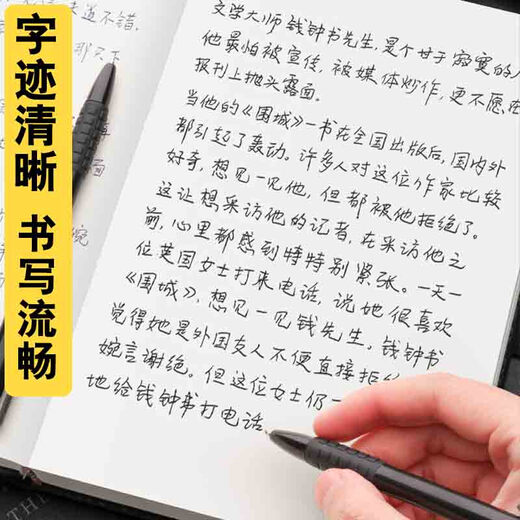 字迹清晰 书写流畅
文学大师钱钟书先生,是个甘于寂寞的人
他最怕被宣传,被媒体炒作,更不愿在
报刊上抛头露面。
当他的《围城》一书在全国出版后,国内外
都引起了轰动。许多人对这位作家比较
好奇,想见一见他,但都被他拒绝了。
这让想采访他的记者,在采访他之
前,心里都感到特特别紧张。一天一
位英国女士打来电话,说她很喜欢
《围城》,想见一见钱先生。钱钟书
觉得她是外国友人不便直接拒
婉言谢绝。但这位女士仍
地给钱钟书打电话。
不错.